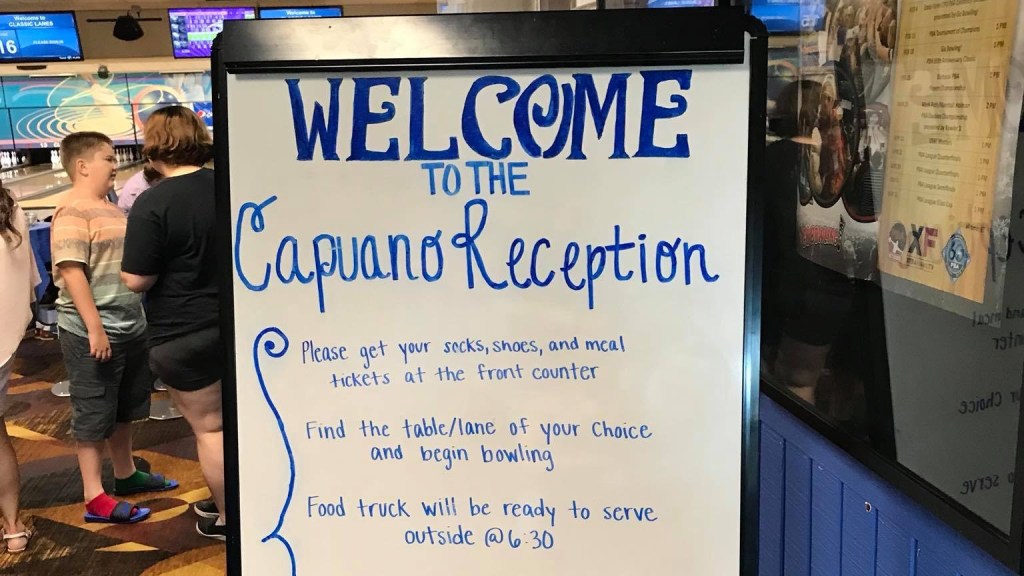 Welcome to
CLASSIC LANES
16
WELCOME
TO THE
Capuano Reception
Please get your socks, shoes, and meal
tickets at the front counter
Find the table/lane of your choice
and begin bowling
Food truck will be ready to serve
outside @6:30